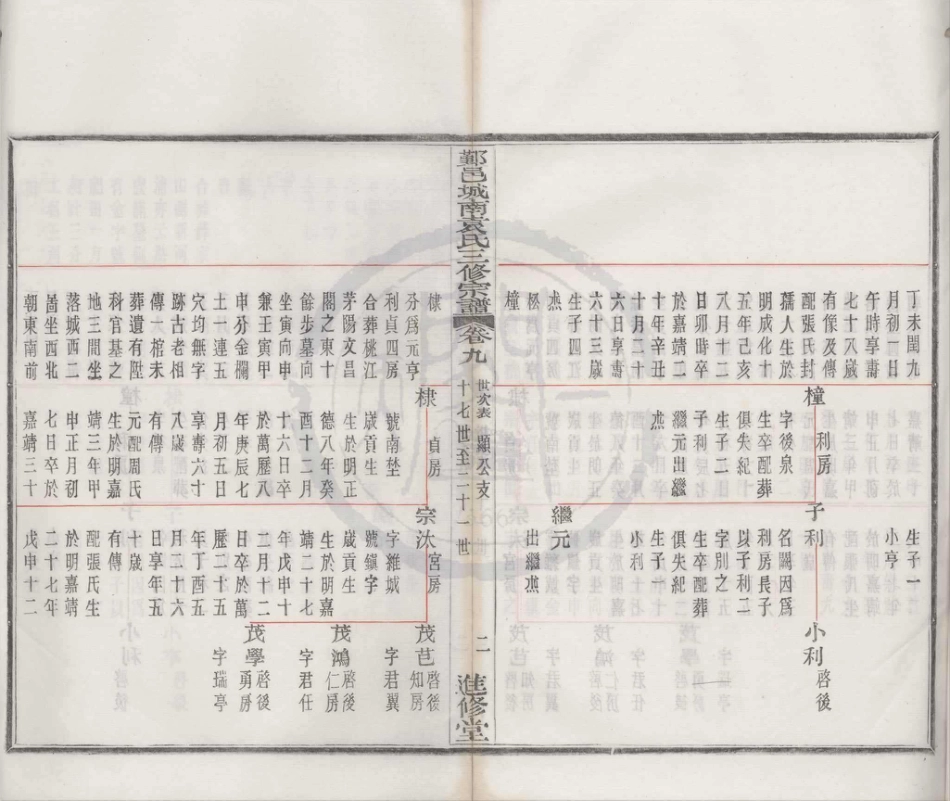 丁未閏九
月初一日
午時享壽
七十八歲
有像及傳
配張氏封
孺人生於
明成化十
五年己亥
八月十二
日卯時卒
於嘉靖二
十年辛丑
十月二十
六日享壽
六十三歲
生子四江
杰
棕
橦
橦 利房
字後泉
生卒配葬
俱失紀
生子二
子利
繼元出繼
杰
生子一
小亨
子利
名闕因爲
利房長子
以子利二
字別之
生卒配葬
俱失紀
生子一
小利
繼元
出繼杰
小利 啓後
鄞邑城南袁氏三修宗譜
卷九
世次表 顯公支
十七世至二十一世
二
進修堂
棣
分爲元亨
利貞四房
合葬桃江
茅陽文昌
閣之東十
餘步墓向
坐寅向申
兼壬寅甲
申分金欄
土一連五
穴均無字
跡古老相
傳一棺未
葬遺有陞
科官基之
地三間坐
落城西二
啚坐西北
朝東南前
棣 貞房
號南埜
歲貢生
生於明正
德八年癸
酉十二月
十六日卒
於萬歷八
年庚辰七
月初五日
享壽六十
八歲
有傳
元配周氏
生於明嘉
靖三年甲
申正月初
七日卒於
嘉靖三十
宗汝 宮房
字維城
號鎭宇
歲貢生
生於明嘉
靖二十七
年戊申十
二月十二
日卒於萬
歷二十五
年丁酉五
月二十六
日享年五
十歲
有傳
配張氏生
於明嘉靖
二十七年
戊申十二
茂芑 啓後
知房
字君翼
茂鴻 啓後
仁房
字君任
茂學 啓後
勇房
字瑞亭